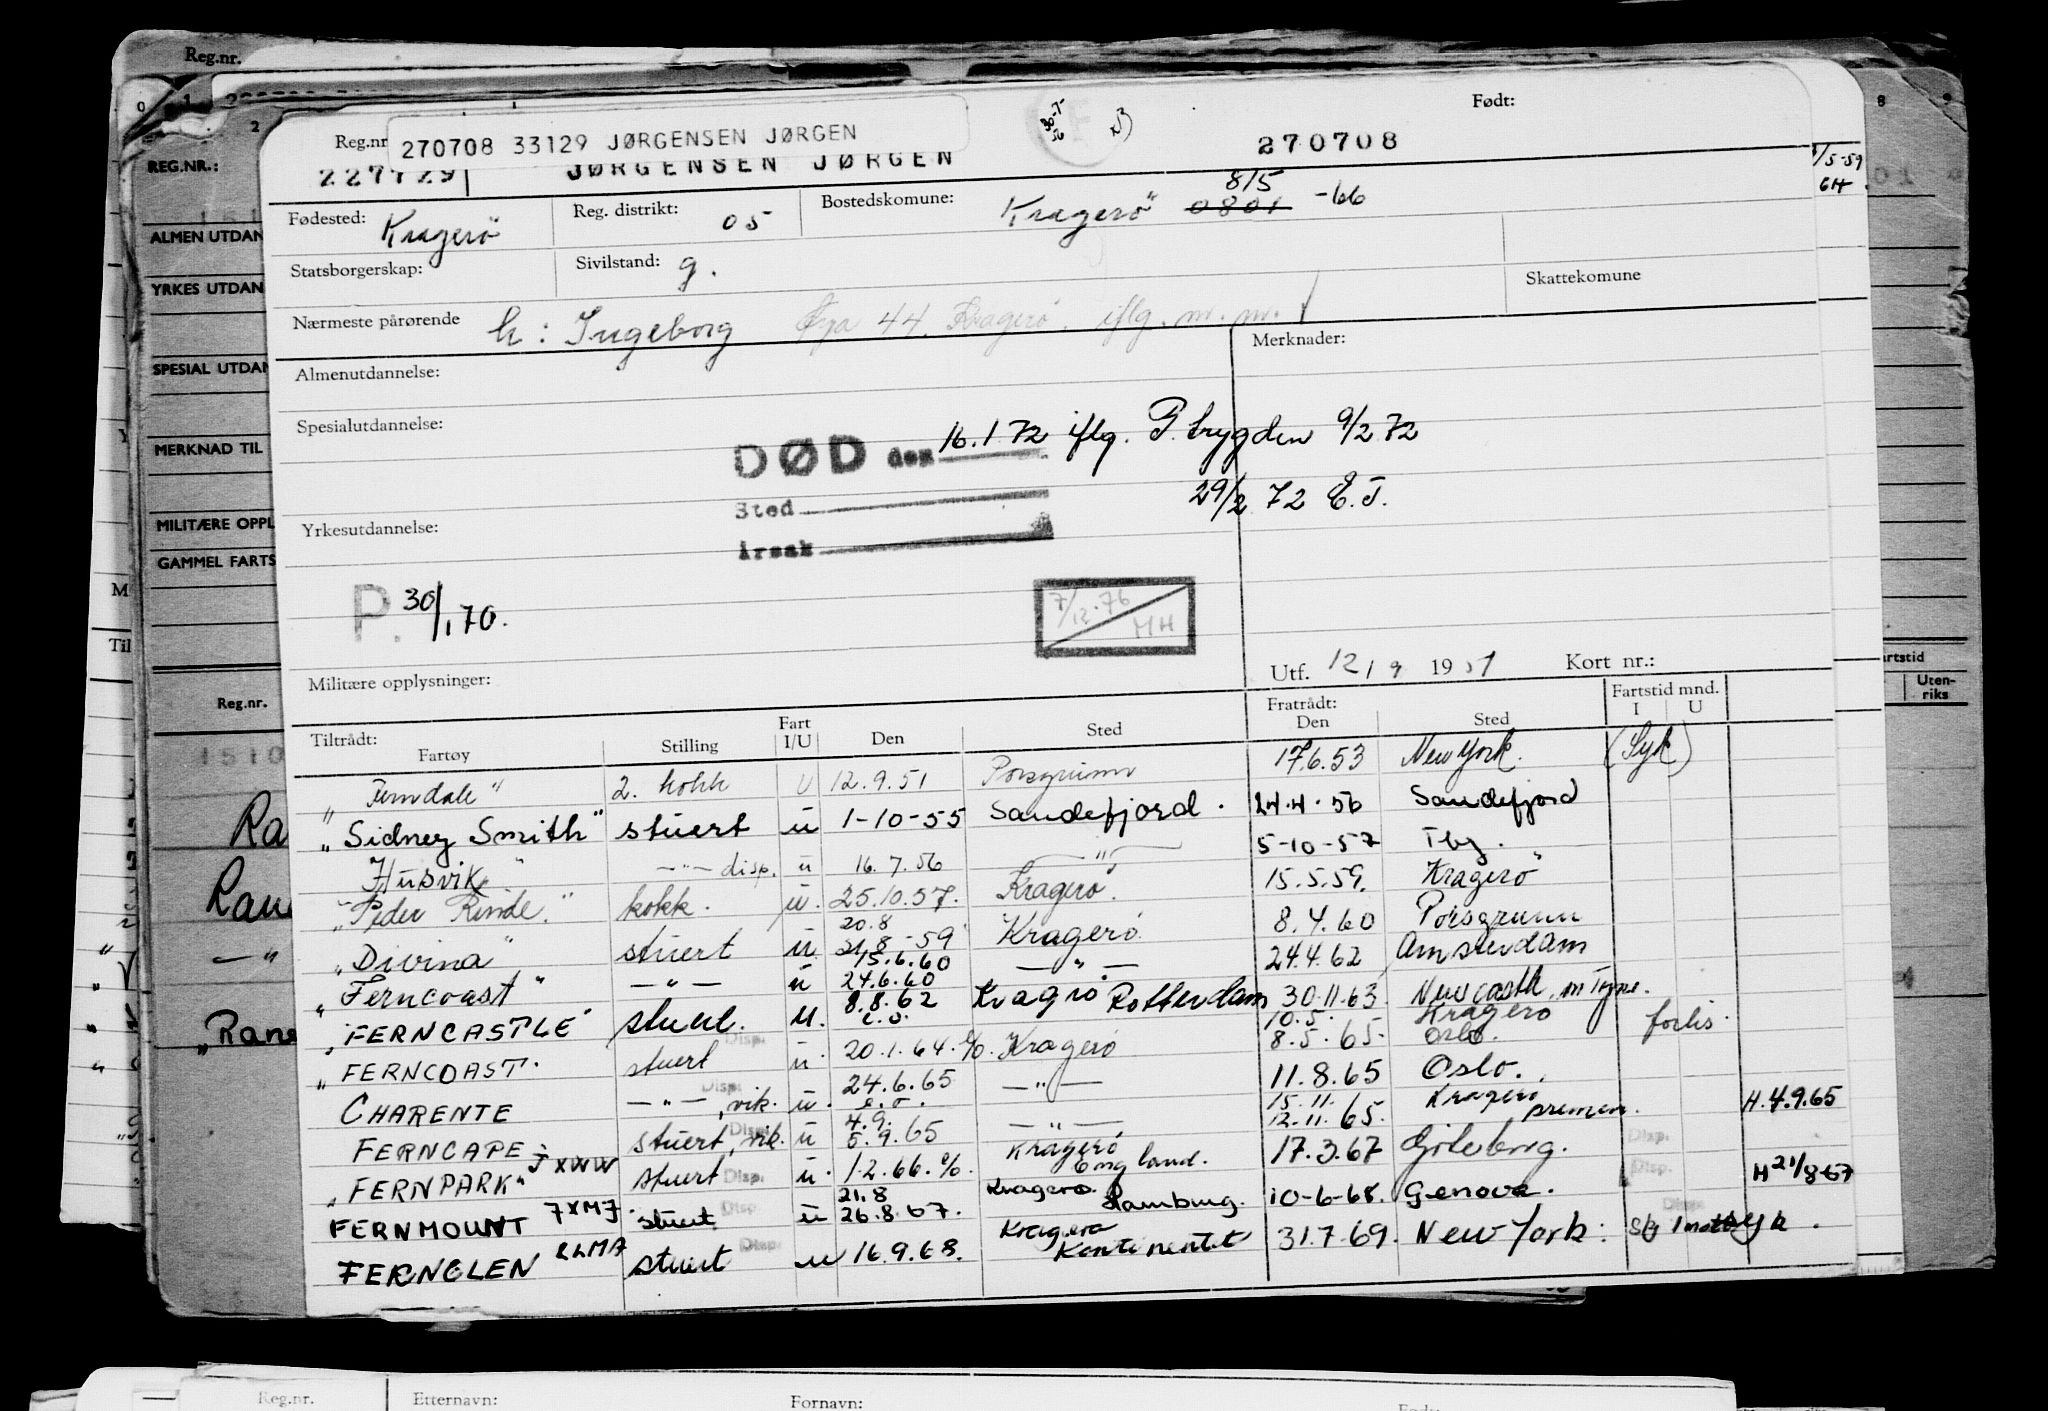 Reg.nr.
Født:
Reg.nr
270708 33129 JØRGENSEN JØRGEN
JØRGENSEN JØRGEN
270708
REG.NR.:
ALMEN UTDAN
YRKES UTDAN
SPESIAL UTDAN
MERKNAD TIL
MILITÆRE OPPL
GAMMEL FARTS
Fødested: Kragerö
Reg. distrikt: 05
Bostedskomune: Kragerö 0801 815 -66
Statsborgerskap:
Sivilstand: g.
Skattekomune
Nærmeste pårørende h: Ingeborg Øya 44. Kragerø. iflg. m.m.
Almenutdannelse:
Merknader:
Spesialutdannelse:
DØD den 16.1.72 iflg. P.trygden 9/2 72
Sted
29/2 72 E.J.
Årsak
Yrkesutdannelse:
P. 30/1 70.
7/12.76 MH
Militære opplysninger:
Utf. 12/9 1951 Kort nr.:
Tiltrådt: Fartøy Stilling Fart I/U Den Sted Fratrådt: Den Sted Fartstid mnd. I U
"Ferndale" 2. kokk U 12.9.51 Porsgrunn 17.6.53 New York. (Syk)
"Sidney Smith" stuert u 1-10-55 Sandefjord. 24.4.56 Sandefjord
Husvik" —"— disp. u 16.7.56 —"— 5-10-57 Tbg.
"Peder Rinde." kokk. u. 25.10.57. Kragerö. 15.5.59. Kragerö
"Divina" stuert u 20.8 21.8-59 Kragerö 8.4.60 Porsgrunn
"Ferncoast" —"— u 15.6.60 24.6.60 —"— 24.4.62 Amsterdam
"FERNCASTLE" stuert. u. 8.8.62 Kragrö Rotterdam 30.11.63.
"FERNCOAST. stuert Disp. u. 20.1.64. Kragerö 10.5. 8.5.65. Kragerö Oslo. forlis.
CHARENTE —"—, vik. Disp. u. 24.6.65 —"— 11.8.65 Oslo.
FERNCAPE stuert, vik. Disp. u 4.9. 5.9.65 —"— 15.11. 12.11.65. Kragerö H.4.9.65
"FERNPARK" JXWW stuert Disp. u. 1.2.66. Kragerö England. 17.3.67 Göteborg. Disp.
FERNMOUNT stuert Disp u 21.8 26.8.67. Kragerø Hamburg. 10-6-68. Genova. Disp. H 21/8-67
FERNGLEN LLMA stuert Disp. u 16.9.68. Kragerø Kontinentet 31.7.69. New York:
Reg.nr.
Uten-riks
Reg.nr. Etternavn: Fornavn: